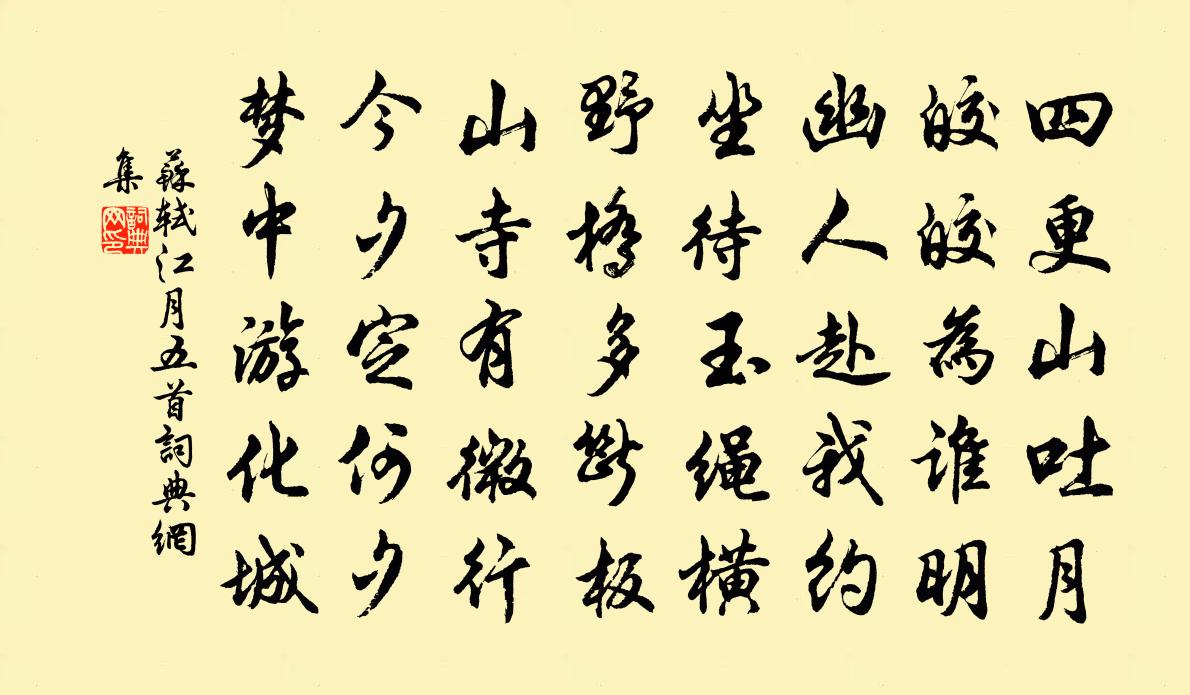 四更山吐月
皎皎為谁明
幽人赴我约
坐待玉绳横
野橋多断板
山寺有微行
今夕定何夕
梦中游化城
蘇軾江月五首詞典網
集
詞典
网印